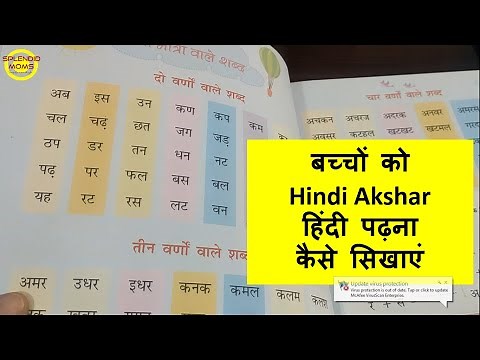 SPLENDID
MOMS
मात्रा वाले शब्द
दो वर्णों वाले शब्द
अब इस उन कण कप कम
चल चढ़ छत जग जड़
ठप डर तन धन नट
पढ़ पर फल बस बल
यह रट रस लट वन
तीन वर्णों वाले शब्द
अमर उधर इधर कनक कमल कलम कलश
चार वर्णों वाले शब्द
अचकन अचरज अदरक अनवर
अवसर कटहल खटखट खटमल
बच्चों को
Hindi Akshar
हिंदी पढ़ना
कैसे सिखाएं
Update virus protection
Virus protection is out of date. Tap or click to update
McAfee VirusScan Enterprise.